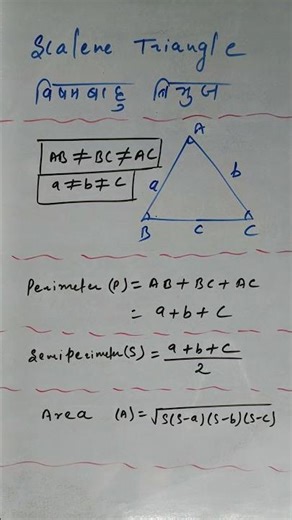 Scalene Triangle
विषमबाहु त्रिभुज
AB ≠ BC ≠ AC
a ≠ b ≠ c
A
a
b
B
C
C
Perimeter (P) = AB + BC + AC
= a + b + c
Semiperimeter (S) = a + b + c / 2
Area (A) = √S(S-a)(S-b)(S-c)